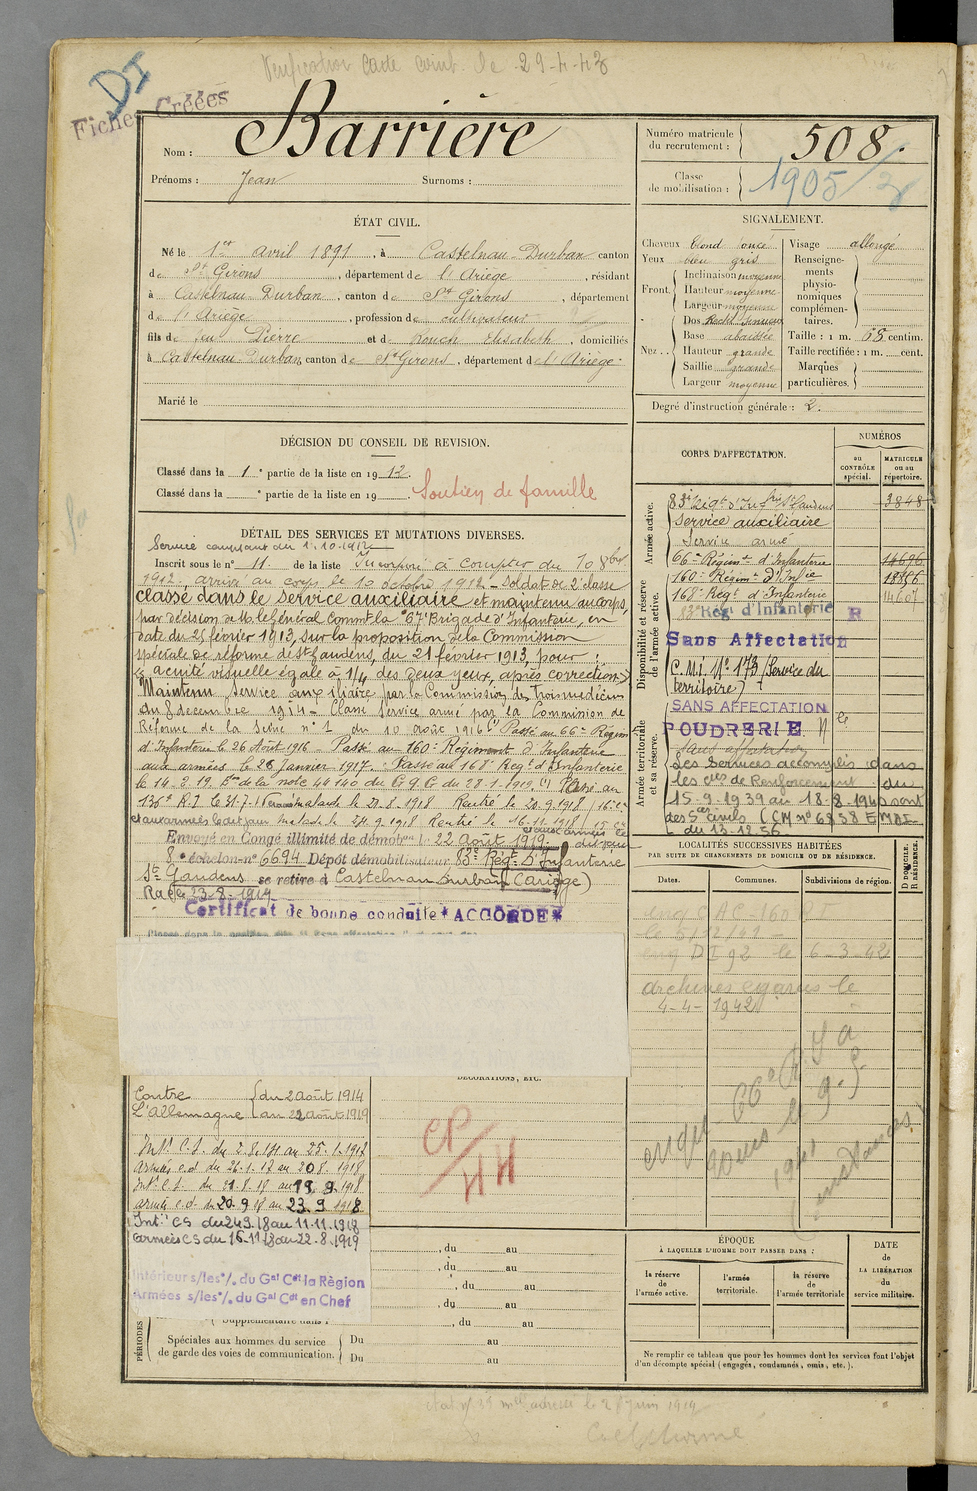 Vérification Carte comb. le 29-4-43
DI
Fiches Créées
Nom : Barrière
Prénoms : Jean Surnoms :
Numéro matricule du recrutement : 508.
Classe de mobilisation : 1905/3
ÉTAT CIVIL.
Né le 1er avril 1891, à Castelnau-Durban canton
de St Girons, département de l'Ariège, résidant
à Castelnau-Durban, canton de St Girons, département
d l'Ariège, profession de cultivateur
fils de feu Pierre et de Rouch Elisabeth, domiciliés
à Castelnau-Durban canton de St Girons, département de l'Ariège.
Marié le
SIGNALEMENT.
Cheveux blond foncé
Yeux bleu gris
Front. Inclinaison moyenne
Hauteur moyenne
Largeur moyenne
Nez Dos Rectil. sinueux
Base abaissée
Hauteur grande
Saillie grande
Largeur moyenne
Visage allongé
Renseignements physionomiques complémentaires.
Taille : 1 m. 68 centim.
Taille rectifiée : 1 m. cent.
Marques particulières.
Degré d'instruction générale : 2.
DÉCISION DU CONSEIL DE REVISION.
Classé dans la 1e partie de la liste en 1912.
Classé dans la e partie de la liste en 19
Soutien de famille
DÉTAIL DES SERVICES ET MUTATIONS DIVERSES.
Service comptant du 1.10.1912
Inscrit sous le n° 11. de la liste Incorporé à compter du 10 8bre
1912, arrivé au corps le 10 octobre 1912 - Soldat de 2e classe
classé dans le service auxiliaire et maintenu au corps,
par décision de M. le Général commt la 67e Brigade d'Infanterie, en
date du 25 février 1913, sur la proposition de la Commission
spéciale de réforme de St Gaudens, du 21 février 1913, pour :
"acuité visuelle égale à 1/4 des deux yeux, après correction"
Maintenu Service auxiliaire par la Commission des trois médecins
du 8 décembre 1914 - Classé service armé par la Commission de
Réforme de la Seine n° 1 du 10 août 1916 Passé au 66e Régim
d'Infanterie le 26 Août 1916 - Passé au 160e Régiment d'Infanterie
aux armées le 26 Janvier 1917. Passé au 168e Régt d'Infanterie
le 14.2.19. Bon de la note 44140 du G.Q.G. du 28.1.1919. (1) Passé au
malade le 20.8.1918 Rentré le 20.9.1918
malade le 24.9.1918 Rentré le 16.11.1918
Envoyé en Congé illimité de démobon le 22 août 1919
8e échelon n° 6694 Dépôt démobilisateur 83e Régt D'Infanterie
St Gaudens se retire à Castelnau Durban (Ariège)
Rayé 23-8-1919
Certificat de bonne conduite * ACCORDÉ *
CORPS D'AFFECTATION.
NUMÉROS
au CONTRÔLE spécial.
MATRICULE ou au répertoire.
Armée active.
83e Régt d'Infrie St Gaudens 3848
Service auxiliaire
Service armé
Disponibilité et réserve de l'armée active.
66e Régimt d'Infanterie 14696
160e Régimt d'Infie
168e Régt d'Infanterie 14607
83e Rég d'Infanterie R
Sans Affectation
C.M.I. N° 173 (Service du
territoire)
Armée territoriale et sa réserve.
SANS AFFECTATION
POUDRERIE Nle
Sans affectation
Les Services accomplis dans
les cies de Renforcement du
15-9-1939 au 18-8-1940 sont
des Sces civils (CM n° 6858 EMDI
du 13-12-56
LOCALITÉS SUCCESSIVES HABITÉES
PAR SUITE DE CHANGEMENTS DE DOMICILE OU DE RÉSIDENCE.
Dates. Communes. Subdivisions de région.
D DOMICILE. R RÉSIDENCE.
enq CAC-160 RI
le 5/12/41 -
enq DI 92 le 6-3-42
archives egarés le
4-4-1942
DÉCORATIONS, ETC.
CP/HH
Contre
L'Allemagne
du 2 août 1914
au 22 août 1919
Intr C.S. du 2.8.14 au 25.1.1917
armées c.d. du 26.1.17 au 20.8.1918
Intr C.S. du 21.8.18 au 19.9.1918
armée c.d. du 20.9.18 au 23.9.1918
Intr CS du 24.9.18 au 11.11.1918
armées CS du 16.11.18 au 22.8.1919
Intérieur s/les °/. du Gal Cdt la Région
Armées s/les °/. du Gal Cdt en Chef
PÉRIODES
Supplémentaire dans l
Spéciales aux hommes du service de garde des voies de communication. Du au
Du au
, du au
, du au
, du au
, du au
, du au
ÉPOQUE
À LAQUELLE L'HOMME DOIT PASSER DANS :
la réserve de l'armée active.
l'armée territoriale.
la réserve de l'armée territoriale
DATE de LA LIBÉRATION du service militaire.
Ne remplir ce tableau que pour les hommes dont les services font l'objet
d'un décompte spécial (engagés, condamnés, omis, etc.).